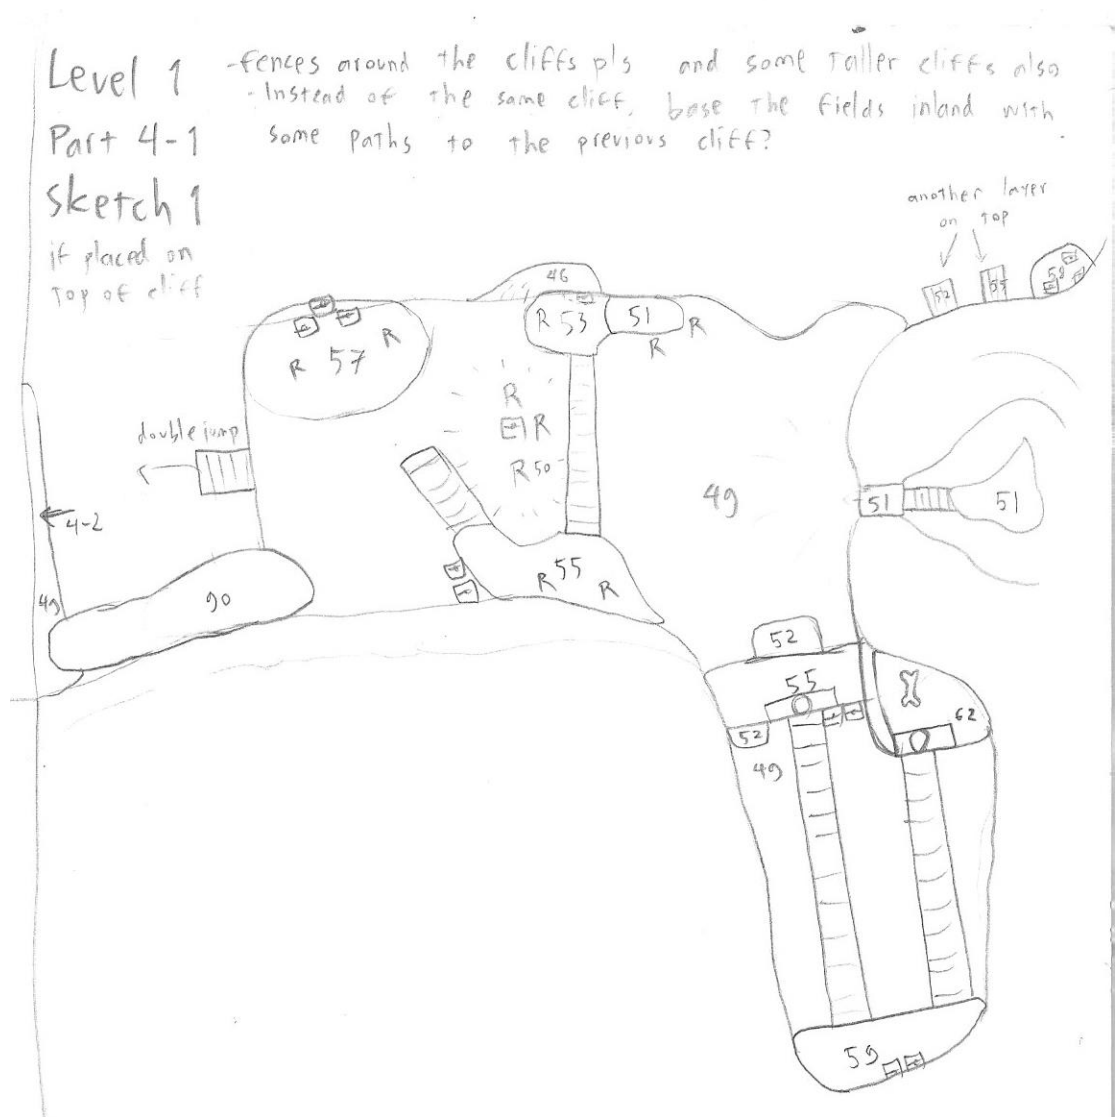 Level 1
Part 4-1
Sketch 1
if placed on
top of cliff
-fences around the cliffs pls and some Taller cliffs also
- Instead of the same cliff, base the fields inland with
some paths to the previous cliff?
another layer
on top
52
55
46
R 53
51
R
R
R 57
R
R
R
R 50
double jump
49
51
51
4-2
49
90
R 55 R
52
55
62
52
49
59